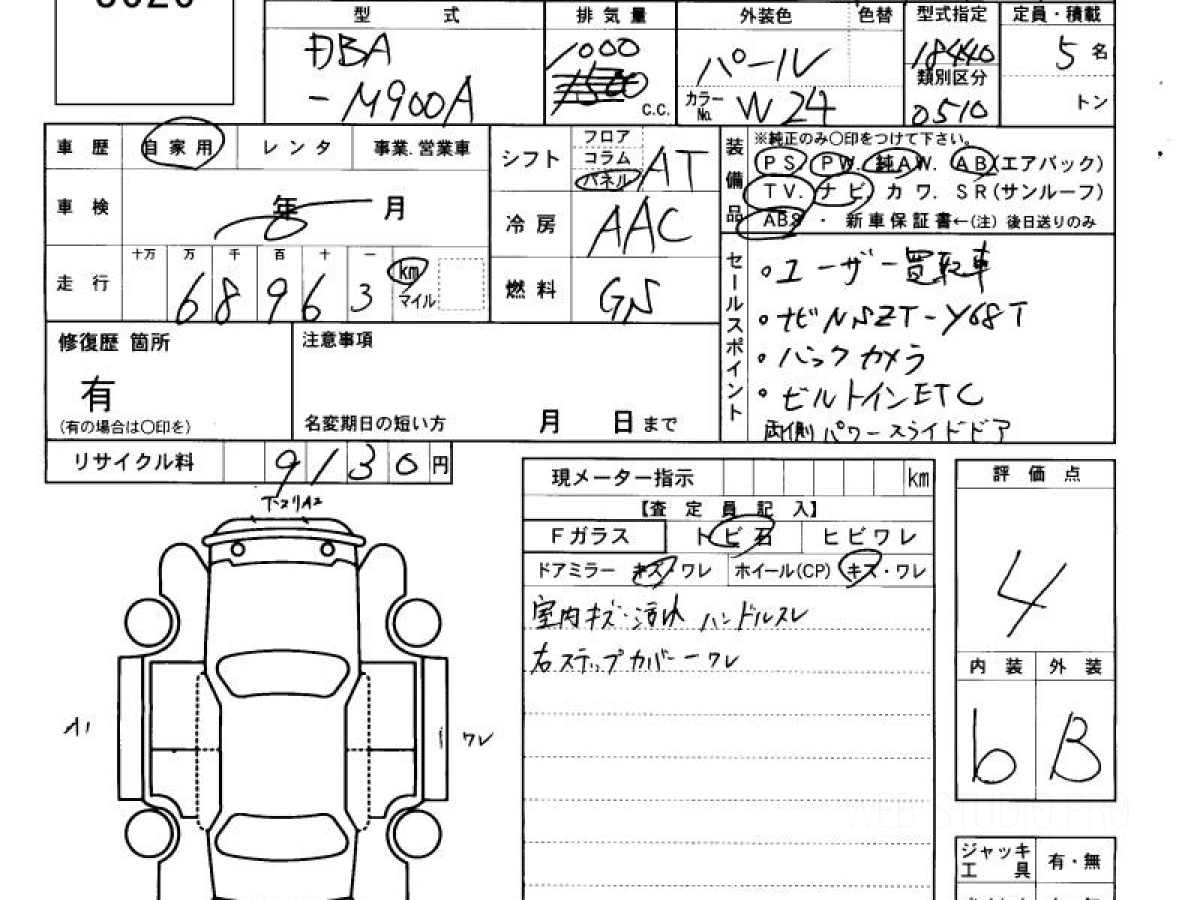 型 式 排 気 量 外装色 色替 型式指定 定員・積載
DBA
-M900A
1000
1500
C.C.
パール
カラーNo. W24
18440
類別区分
0510
5 名
トン
車 歴 自家用 レンタ 事業.営業車
車 検 年 月
走 行 十万 万 千 百 十 一
6 8 9 6 3 km
マイル
シフト フロア
コラム
パネル AT
冷 房 AAC
燃 料 GN
装備品 ※純正のみ〇印をつけて下さい。
PS PW. 純AW. AB(エアバック)
TV. ナビ カワ. SR(サンルーフ)
ABS ・ 新車保証書←(注) 後日送りのみ
セールスポイント
・ユーザー買取車
・ナビNSZT-Y68T
・バックカメラ
・ビルトインETC
両側パワースライドドア
修復歴 箇所
有
(有の場合は〇印を)
注意事項
名変期日の短い方 月 日まで
リサイクル料 9130円
現メーター指示 km
【査 定 員 記 入】
Fガラス トビ石 ヒビワレ
ドアミラー キズ・ワレ ホイール(CP) キズ・ワレ
室内キズ・汚れ ハンドルスレ
右ステップカバーワレ
評 価 点
4
内 装 外 装
b B
A1
ワレ
WEB-STUDIO.PRO
ジャッキ
工 具 有・無